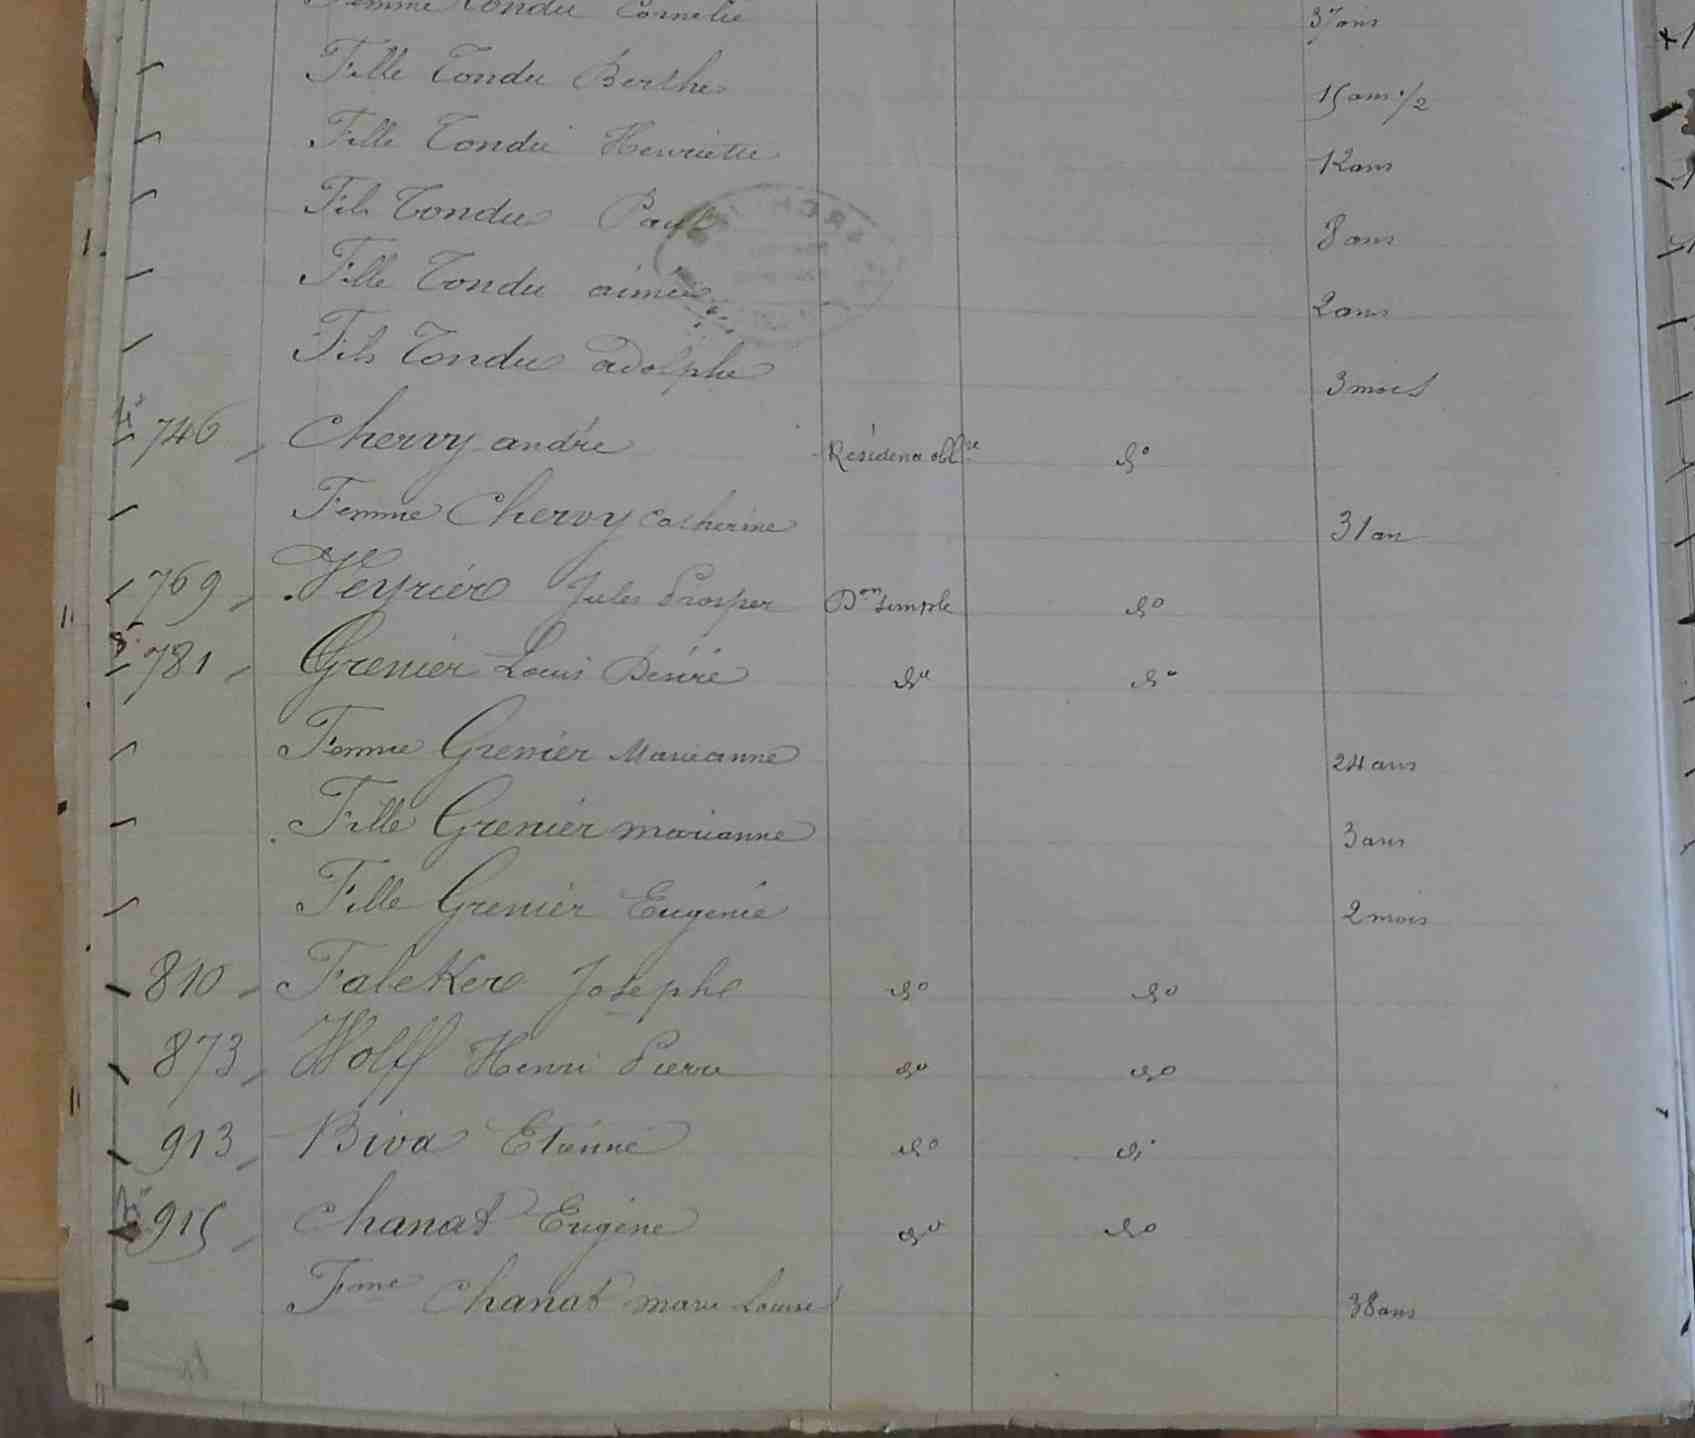 Femme Tondu Cornelie 37 ans
Fille Tondu Berthe 15 ans 1/2
Fille Tondu Henriette 12 ans
Fils Tondu Paul 8 ans
Fille Tondu aimée 2 ans
Fils Tondu adolphe 3 mois
746 Chervy andré Résidence oblre do
Femme Chervy Catherine 31 an
769 Veyrier Jules Prosper Don simple do
781 Grenier Louis Désiré do do
Femme Grenier Marieanne 24 ans
Fille Grenier marianne 3 ans
Fille Grenier Eugenie 2 mois
810 Faleker Josephe do do
873 Wolff Henri Pierre do do
913 Biva Etienne do do
915 Chanat Eugène do do
Fme Chanat marie Louise 38 ans